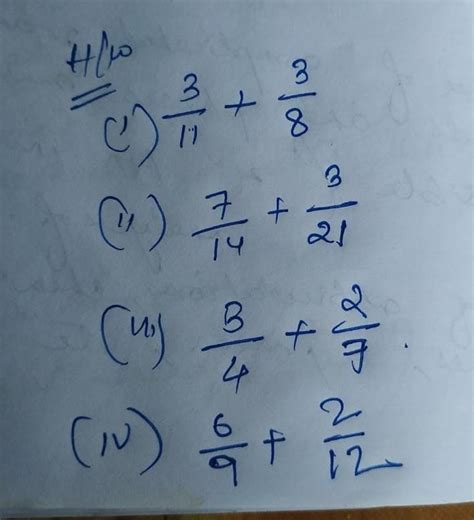 H/W
(i) 3/11 + 3/8
(ii) 7/14 + 3/21
(iii) 3/4 + 2/7.
(iv) 6/9 + 2/12